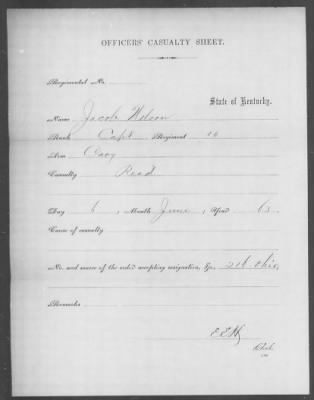 OFFICERS' CASUALTY SHEET.
Regimental No.
State of Kentucky.
Name Jacob Wilson
Rank Capt Regiment 10
Arm Cavy
Casualty
Day 6, Month June, Year 63
Cause of casualty
No. and source of the order accepting resignation, &c., Ohio,
Remarks
Clerk.